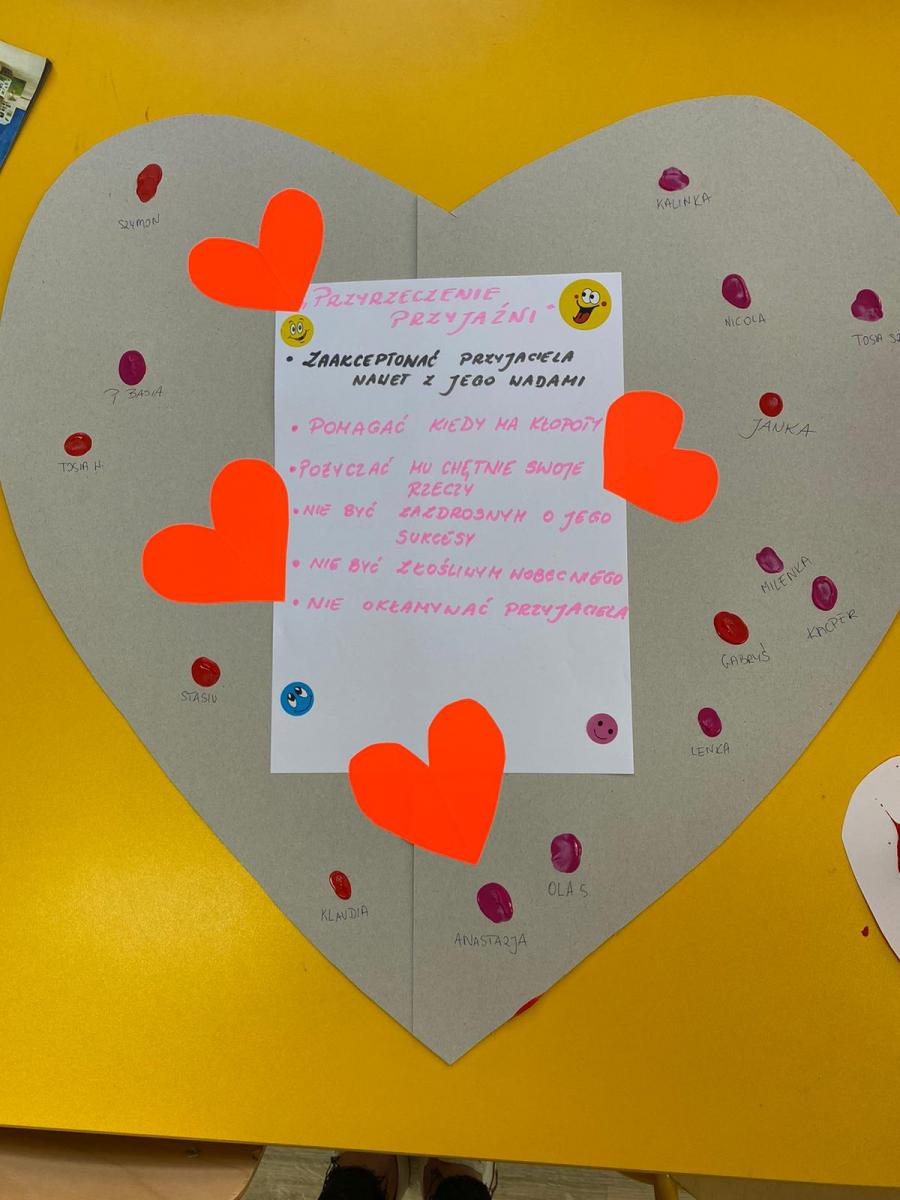 „PRZYRZECZENIE
PRZYJAŹNI"
• ZAAKCEPTOWAĆ PRZYJACIELA
NAWET Z JEGO WADAMI
• POMAGAĆ KIEDY MA KŁOPOTY
• POŻYCZAĆ MU CHĘTNIE SWOJE
RZECZY
• NIE BYĆ ZAZDROSNYM O JEGO
SUKCESY
• NIE BYĆ ZŁOŚLIWYM WOBEC NIEGO
• NIE OKŁAMYWAĆ PRZYJACIELA
SZYMON
KALINKA
NICOLA
TOSIA SZ
P. BASIA
JANKA
TOSIA H.
MILENKA
KACPER
GABRYŚ
STASIU
LENKA
OLA S
KLAUDIA
ANASTAZJA